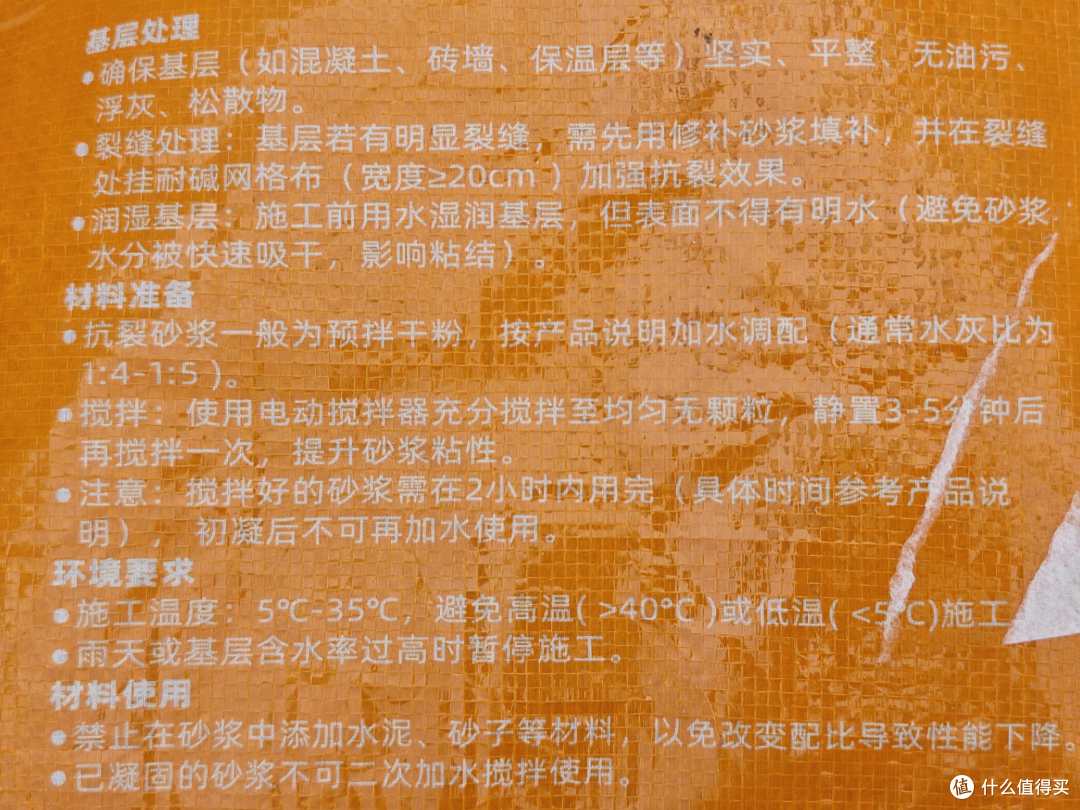 基层处理
●确保基层（如混凝土、砖墙、保温层等）坚实、平整、无油污、
浮灰、松散物。
●裂缝处理：基层若有明显裂缝，需先用修补砂浆填补，并在裂缝
处挂耐碱网格布（宽度≥20cm ）加强抗裂效果。
●润湿基层：施工前用水湿润基层，但表面不得有明水（避免砂浆
水分被快速吸干，影响粘结）。
材料准备
●抗裂砂浆一般为预拌干粉，按产品说明加水调配（通常水灰比为
1:4-1:5 )。
●搅拌：使用电动搅拌器充分搅拌至均匀无颗粒，静置3-5分钟后
再搅拌一次，提升砂浆粘性。
●注意：搅拌好的砂浆需在2小时内用完（具体时间参考产品说
明），初凝后不可再加水使用。
环境要求
●施工温度：5℃-35℃，避免高温( >40℃ )或低温( <5℃)施工
●雨天或基层含水率过高时暂停施工。
材料使用
●禁止在砂浆中添加水泥、砂子等材料，以免改变配比导致性能下降。
●已凝固的砂浆不可二次加水搅拌使用。
值 什么值得买